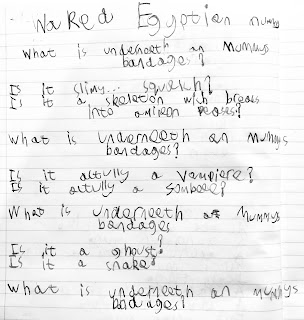 Naked Egyptian mummy
What is underneeth an Mummys
bandages?
Is it slimy... squelch?
Is it a skeleton with breaks
into amilion peases?
What is underneeth an Mummys
bandages?
Is it actully a Vampiere?
Is it actully a zombee?
What is underneeth an Mummys
bandages
Is it a ghoust?
Is it a snake?
What is underneeth an Mummys
bandages?